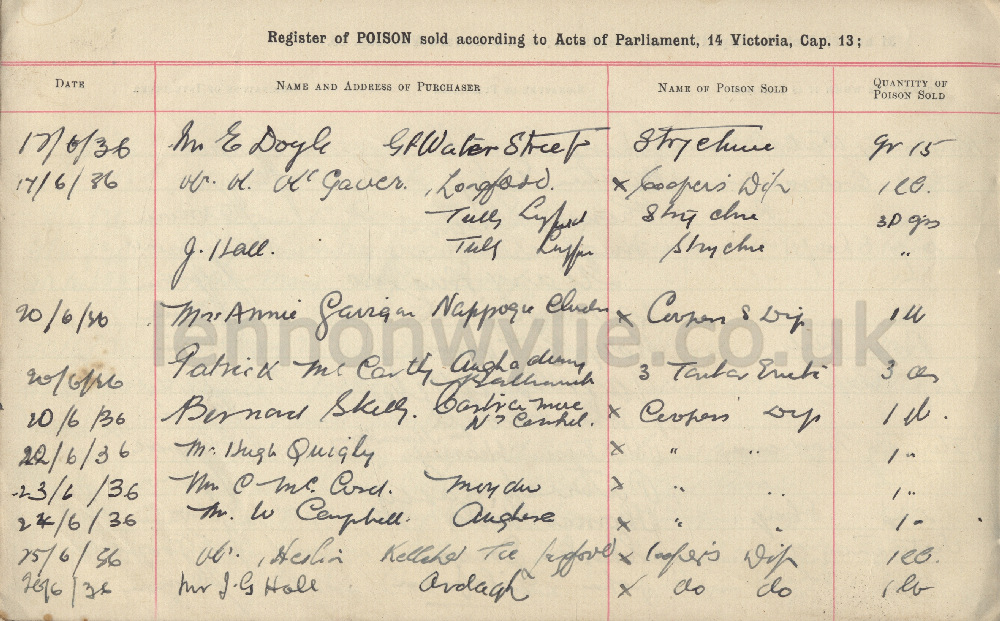 Register of POISON sold according to Acts of Parliament, 14 Victoria, Cap. 13;
DATE NAME AND ADDRESS OF PURCHASER NAME OF POISON SOLD QUANTITY OF POISON SOLD
17/6/36 Mr E Doyle Gt Water Street Strychnine gr 15
17/6/36 Mc Gaver. Longford. x Cooper's Dip 1 lb.
Tully 30 grs
J. Hall. Tully "
20/6/36 Mrs Annie Garrigan Nappogue x Coopers Dip 1 lb
20/6/36 Patrick McCarthy 3 Tartar 3
20/6/36 Bernard Skelly. Nr Cashel. x Coopers Dip 1 lb.
22/6/36 Mr Hugh Quigly x " " 1 "
23/6/36 C Mc Moydow x " " 1 "
24/6/36 Mr. W Campbell. x " " 1 "
25/6/36 Heslin x Cooper's Dip 1 lb.
26/6/36 Mr J. G Hall Ardagh x do do 1 lb
lennonwylie.co.uk